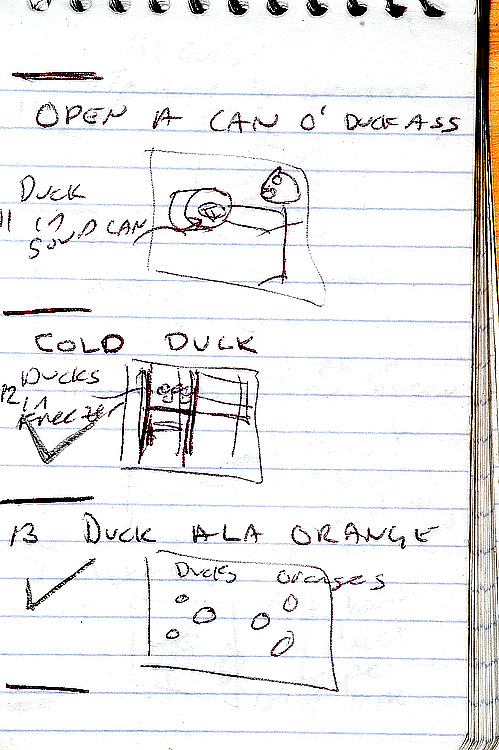 OPEN A CAN O' DUCK ASS
Duck
11 in
SOUP CAN
COLD DUCK
Ducks
12 in
Freezer
13 DUCK A LA ORANGE
Ducks oranges